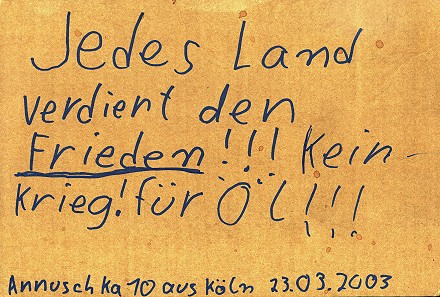 Jedes Land
verdient den
Frieden!!! Kein-
krieg! für Öl!!!
Annuschka 10 aus Köln 23.03.2003